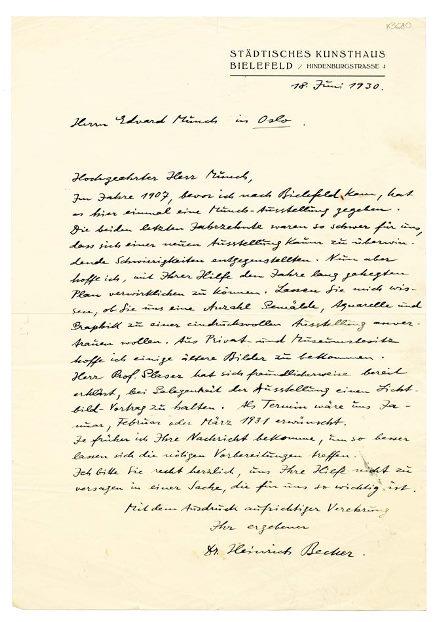 K3680
STÄDTISCHES KUNSTHAUS
BIELEFELD / HINDENBURGSTRASSE 4
18. Juni 1930.
Herrn Edvard Munch in Oslo.
Hochgeehrter Herr Munch,
Im Jahre 1907, bevor ich nach Bielefeld kam, hat
es hier einmal eine Munch-Ausstellung gegeben.
Die beiden letzten Jahrzehnte waren so schwer für uns,
dass sich einer neuen Ausstellung kaum zu überwin-
dende Schwierigkeiten entgegenstellten. Nun aber
hoffe ich, mit Ihrer Hilfe den Jahre lang gehegten
Plan verwirklichen zu können. Lassen Sie mich wis-
sen, ob Sie uns eine Anzahl Gemälde, Aquarelle und
Graphik zu einer eindrucksvollen Ausstellung anver-
trauen wollen. Aus Privat- und Museumsbesitz
hoffe ich einige ältere Bilder zu bekommen.
Herr Prof. Glaser hat sich freundlicherweise bereit
erklärt, bei Gelegenheit der Ausstellung einen Licht-
bild-Vortrag zu halten. Als Termin wäre uns Ja-
nuar, Februar oder März 1931 erwünscht.
Je früher ich Ihre Nachricht bekomme, um so besser
lassen sich die nötigen Vorbereitungen treffen.
Ich bitte Sie recht herzlich, uns Ihre Hilfe nicht zu
versagen in einer Sache, die für uns so wichtig ist.
Mit dem Ausdruck aufrichtiger Verehrung
Ihr ergebener
Dr. Heinrich Becker.